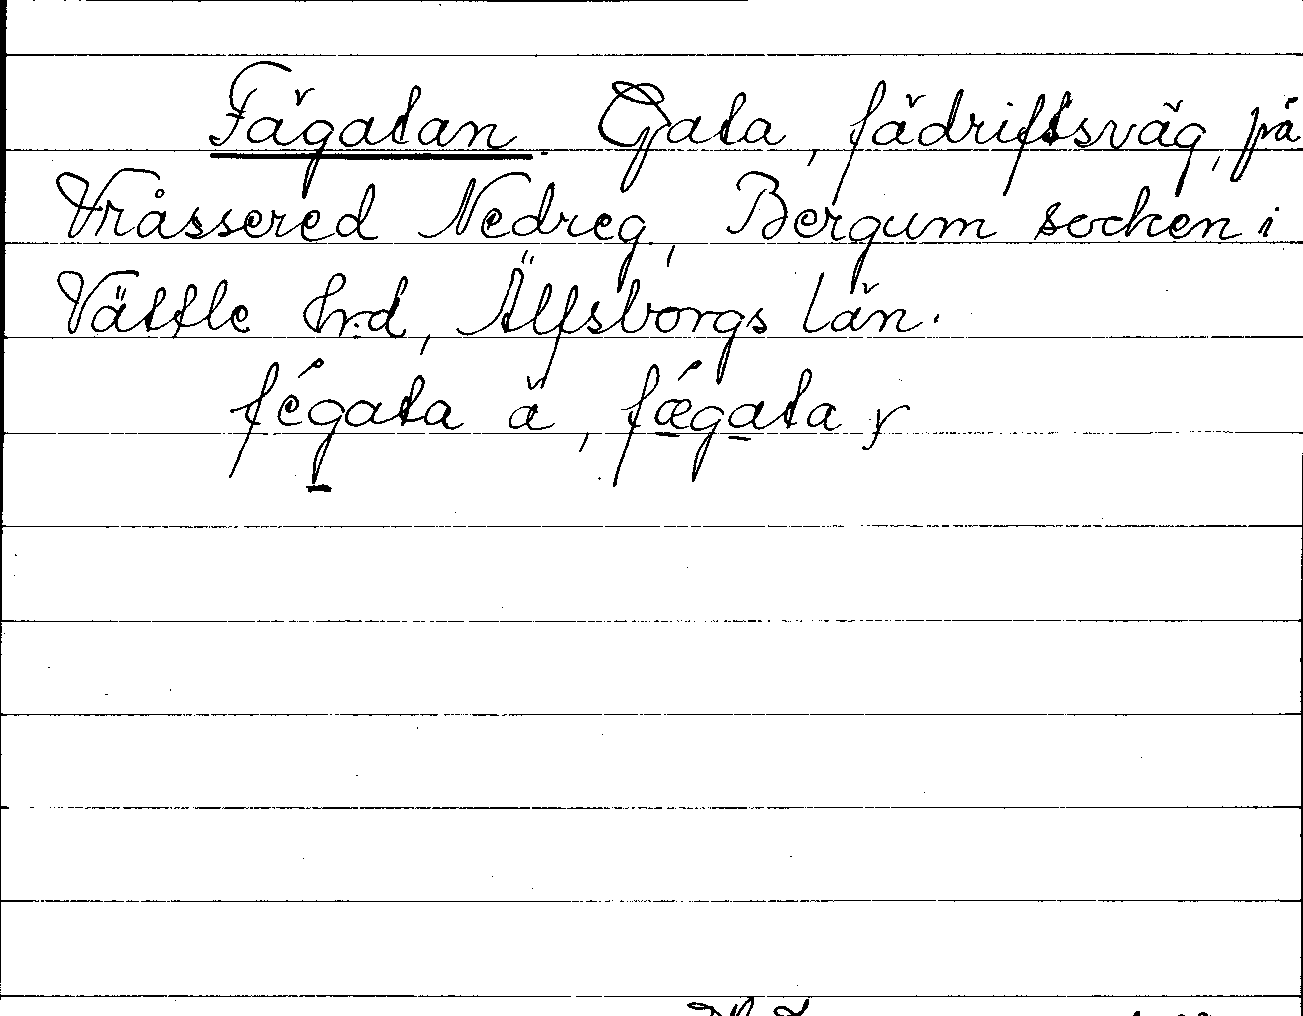 Fägatan. Gata, fädriftsväg, på
Vråssered Nedreg., Bergum socken i
Vättle Hrd, Älfsborgs län.
fégata ä, fægata y